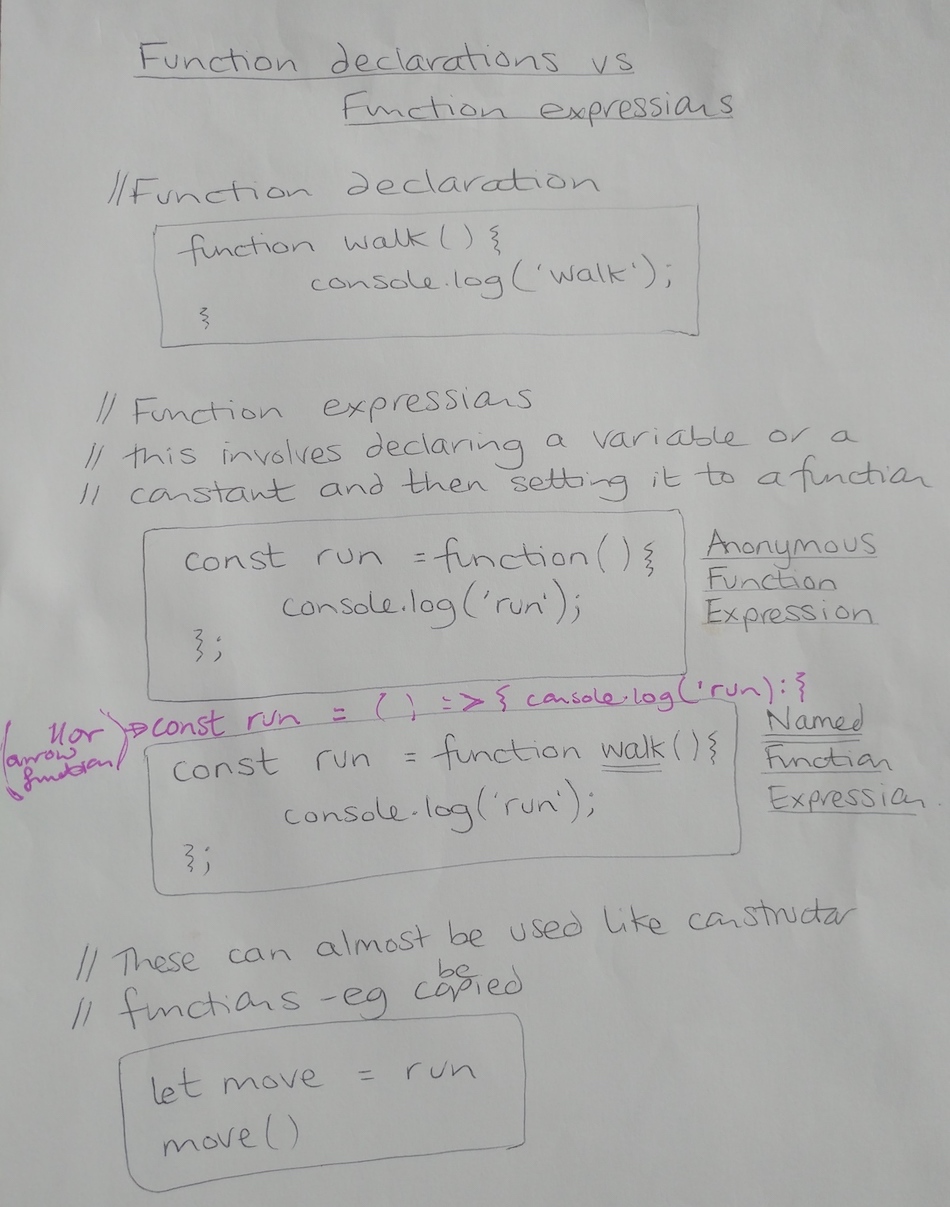 Function declarations vs
Function expressions
//Function declaration
function walk(){
console.log('walk');
}
// Function expressions
// this involves declaring a variable or a
// constant and then setting it to a function
const run = function(){
console.log('run');
};
Anonymous
Function
Expression
(//or
arrow
function)
const run = () => { console.log('run): }
const run = function walk(){
console.log('run');
};
Named
Function
Expression.
// These can almost be used like constructor
// functions - eg be copied
let move = run
move()